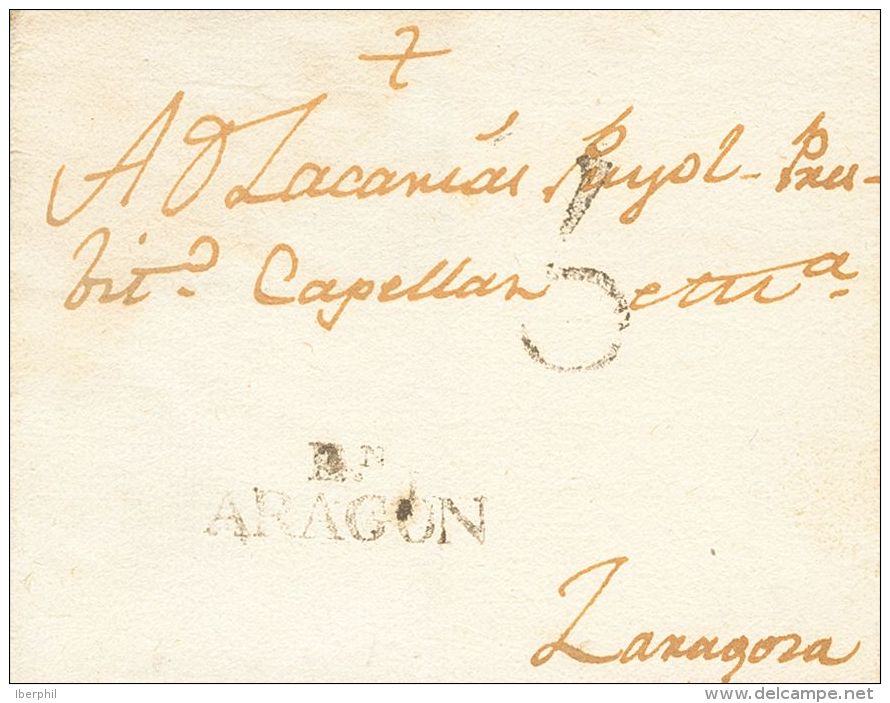 A D Zacarias Puyol - Pres-
bit.º Capellan etti.ª
5
E.N
ARAGON
Zaragoza
Iberphil
delcampe.net